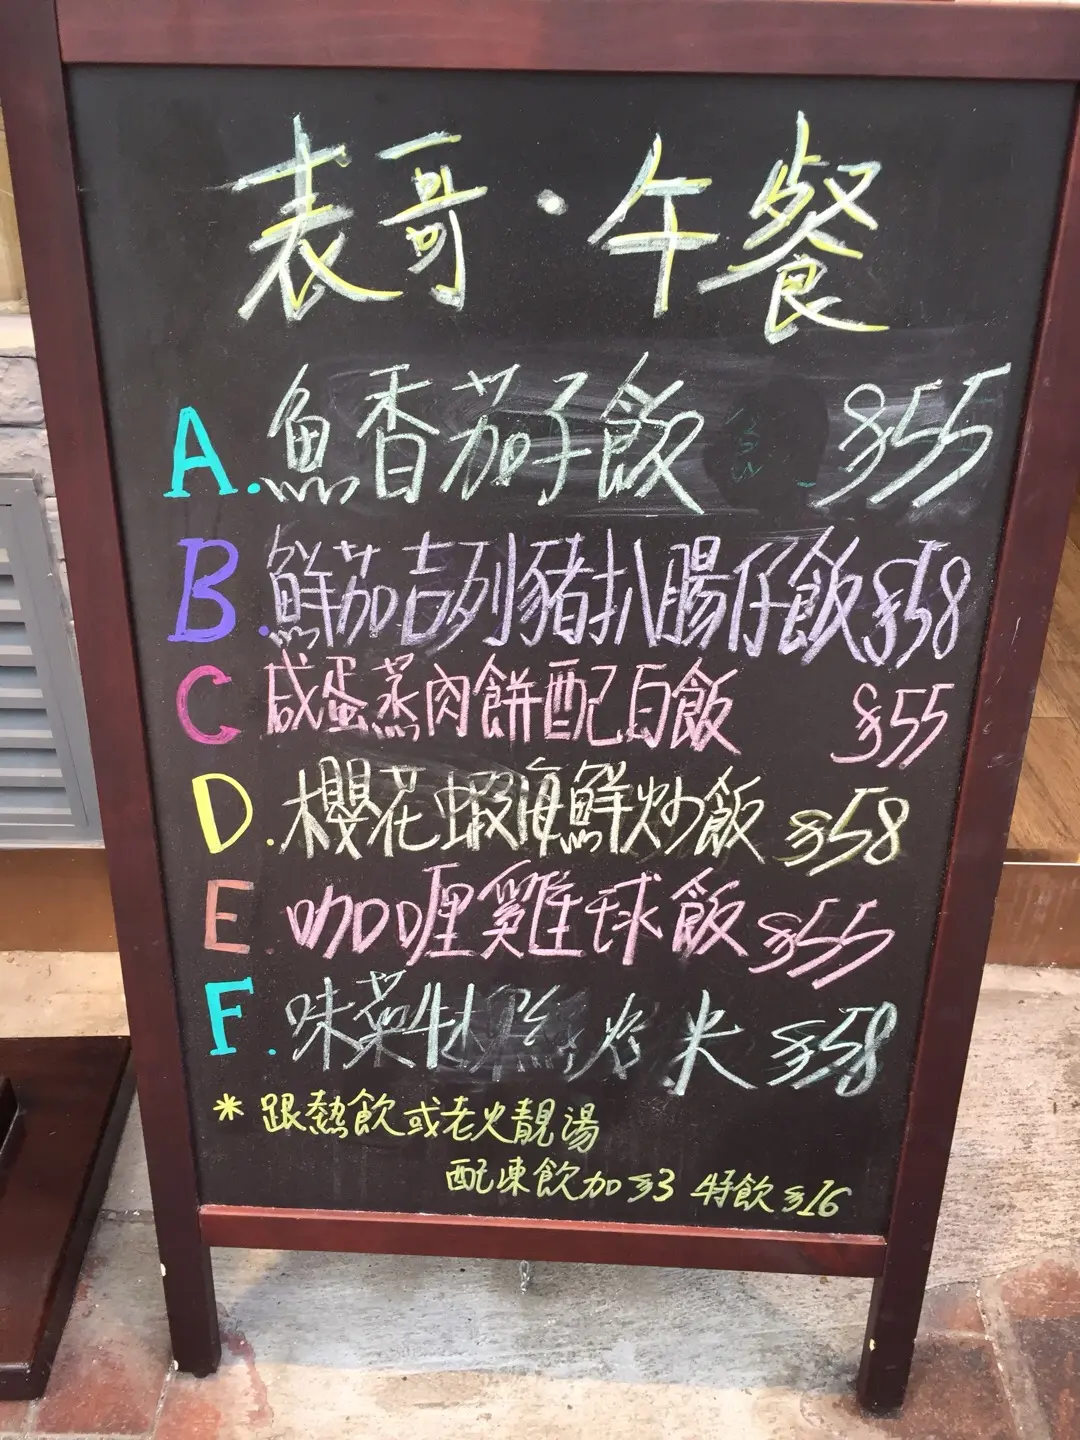 表哥·午餐
A.魚香茄子飯 $55
B.鮮茄吉列豬扒腸仔飯$58
C 咸蛋蒸肉餅配白飯 $55
D.櫻花蝦海鮮炒飯 $58
E.咖喱雞球飯$55
F.味菜牛 炒米 $58
*跟熱飲或老火靚湯
配凍飲加$3 特飲$16